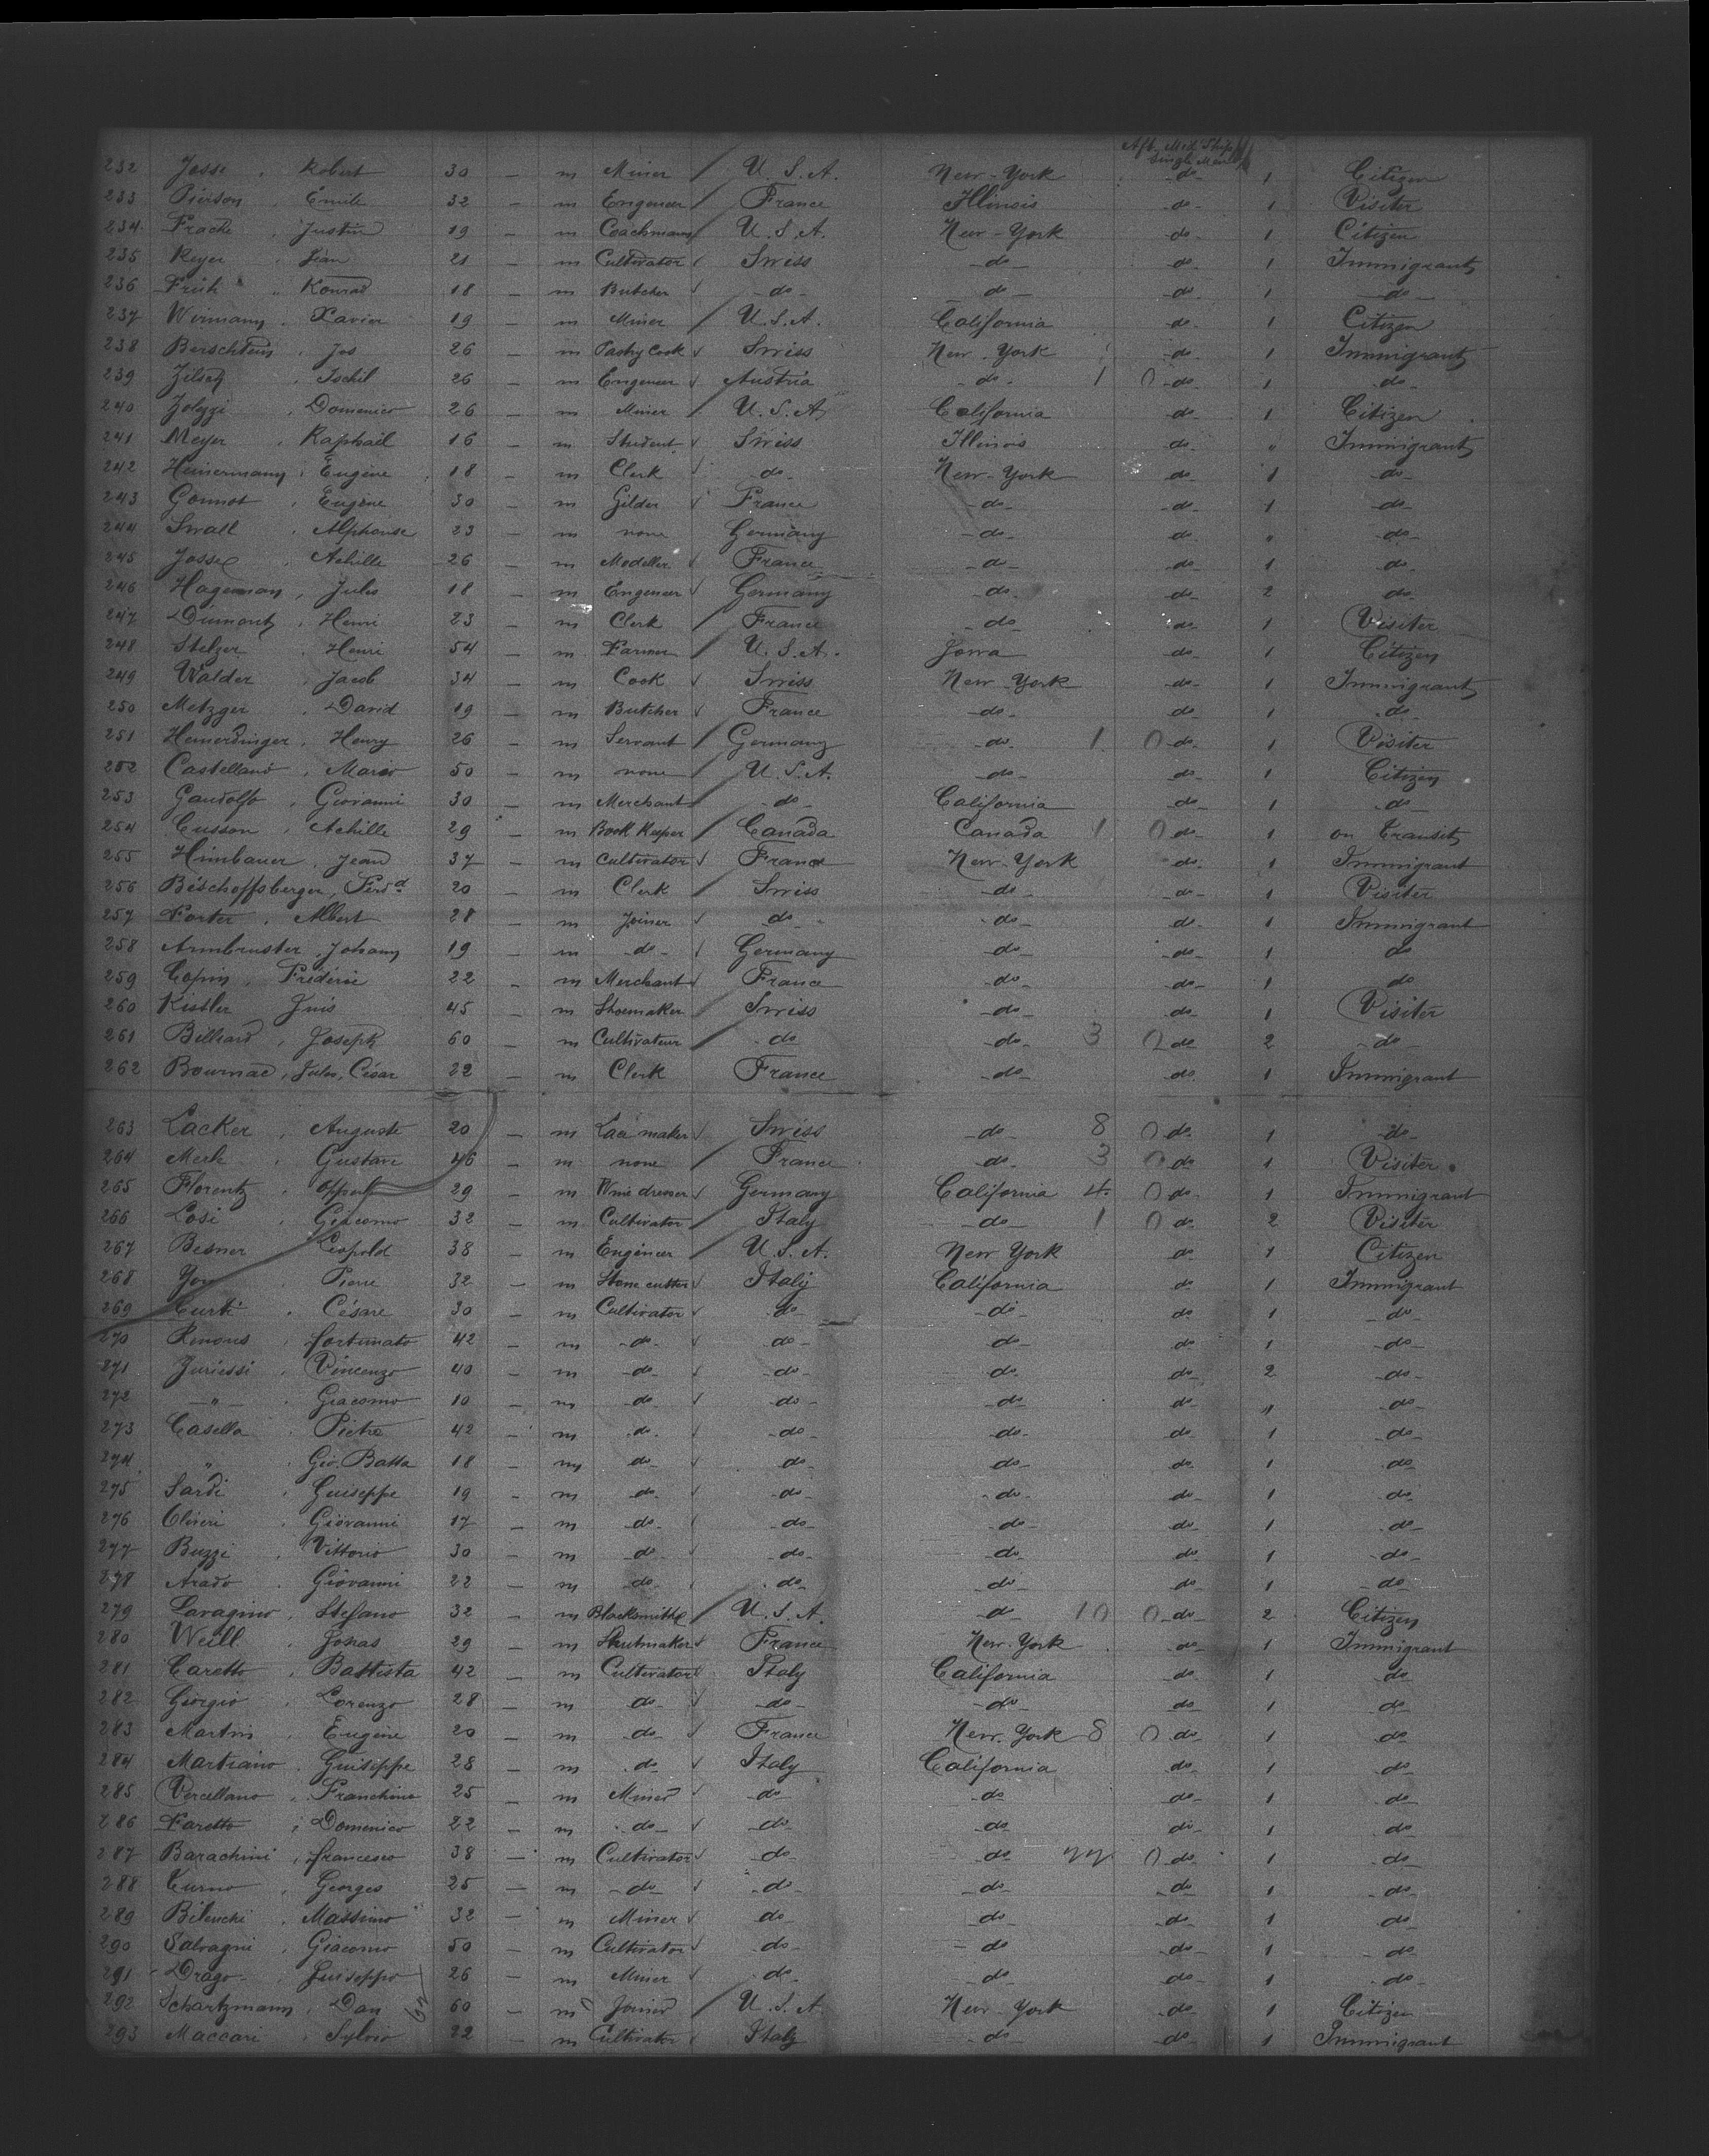 Aft. Mid. Ships Single Men
232 Josse, Robert 30 — m Miner / U.S.A. New-York do 1 Citizen
233 Pierson, Emile 32 — m Engeneer / France Illinois do 1 Visiter
234 Frache, Justin 19 — m Coachman / U.S.A. New-York do 1 Citizen
235 Reyer, Jean 21 — m Cultivator Swiss do do 1 Immigrant
236 Früh, Konrad 18 — m Butcher do do do 1 do
237 Wermann, Xavier 19 — m Miner / U.S.A. California do 1 Citizen
238 Berschtein, Jos 26 — m Pastry Cook Swiss New-York do 1 Immigrant
239 Ischil 26 — m Engeneer Austria do 1 0 do 1 do
240 Domenico 26 — m Miner / U.S.A. California do 1 Citizen
241 Meyer, Raphaël 16 — m Student Swiss Illinois do " Immigrant
242 Heinermann, Eugène 18 — m Clerk do New-York do 1 do
243 Gonnot, Eugène 30 — m Gilder France do do 1 do
244 Small, Alphonse 23 — m none Germany do do " do
245 Jossel, Achille 26 — m Modeller France do do 1 do
246 Hageman, Jules 18 — m Engeneer Germany do do 2 do
247 Dumont, Henri 23 — m Clerk / France do do 1 Visiter
248 Stelzer, Henri 54 — m Farmer / U.S.A. Jowa do 1 Citizen
249 Walder, Jacob 34 — m Cook Swiss New-York do 1 Immigrant
250 Metzger, David 19 — m Butcher France do do 1 do
251 Hemerdinger, Henry 26 — m Servant / Germany do 1 0 do 1 Visiter
252 Castellano, Mario 50 — m none / U.S.A. do do 1 Citizen
253 Gandolfo, Giovanni 30 — m Merchant / do California do 1 do
254 Cusson, Achille 29 — m Book Keeper / Canada Canada 1 0 do 1 on Transit
255 Himbauer, Jean 37 — m Cultivator France New-York do 1 Immigrant
256 Bischoffsberger, Ferd 20 — m Clerk / Swiss do do 1 Visiter
257 Forter, Albert 28 — m Joiner do do do 1 Immigrant
258 Armbruster, Johann 19 — m do Germany do do 1 do
259 Copin, Frédéric 22 — m Merchant France do do 1 do
260 Kistler 45 — m Shoemaker / Swiss do do 1 Visiter
261 Billiard, Joseph 60 — m Cultivateur / do do 3 0 do 2 do
262 Bournac, Jules, César 22 — m Clerk France do do 1 Immigrant
263 Lacker, Auguste 20 — m Lace maker Swiss do 8 0 do 1 do
264 Merk, Gustave 46 — m none / France do 3 0 do 1 Visiter
265 Florentz 29 — m Wine dresser Germany California 4 0 do 1 Immigrant
266 Losi, Giacomo 32 — m Cultivator / Italy do 1 0 do 2 Visiter
267 Besner, Leopold 38 — m Engineer / U.S.A. New York do 1 Citizen
268 Yon, Pierre 32 — m Stone cutter Italy California do 1 Immigrant
269 Curti, Césare 30 — m Cultivator do do do 1 do
270 fortunato 42 — m do do do do 1 do
271 Vincenzo 40 — m do do do do 2 do
272 — " — Giacomo 10 — m do do do do " do
273 Casella, Pietro 42 — m do do do do 1 do
274 " Gio. Batta 18 — m do do do do 1 do
275 Sardi, Guiseppe 19 — m do do do do 1 do
276 Oliveri, Giovanni 17 — m do do do do 1 do
277 Buzzi, Vittorio 30 — m do do do do 1 do
278 Arado, Giovanni 22 — m do do do do 1 do
279 Lavagino, Stefano 32 — m Blacksmith / U.S.A. do 10 0 do 2 Citizen
280 Weill, Jonas 29 — m France New-York do 1 Immigrant
281 Caretto, Battista 42 — m Cultivator Italy California do 1 do
282 Giorgio, Lorenzo 28 — m do do do do 1 do
283 Martin, Eugène 20 — m do France New-York 8 0 do 1 do
284 Martiano, Guiseppe 28 — m do Italy California do 1 do
285 Vercellano, Franchino 25 — m Miner do do do 1 do
286 Faretto, Domenico 22 — m do do do do 1 do
287 Barachini, francesco 38 — m Cultivator do do 77 0 do 1 do
288 Curno, Georges 25 — m do do do do 1 do
289 Bilenchi, Massimo 32 — m Miner do do do 1 do
290 Salvagni, Giacomo 50 — m Cultivator do do do 1 do
291 Drago, Guiseppe 26 — m Miner do do do 1 do
292 Schartzmann, Dan 60 — m Joiner / U.S.A. New-York do 1 Citizen
293 Maccari, Sylvio 22 — m Cultivator Italy do do 1 Immigrant